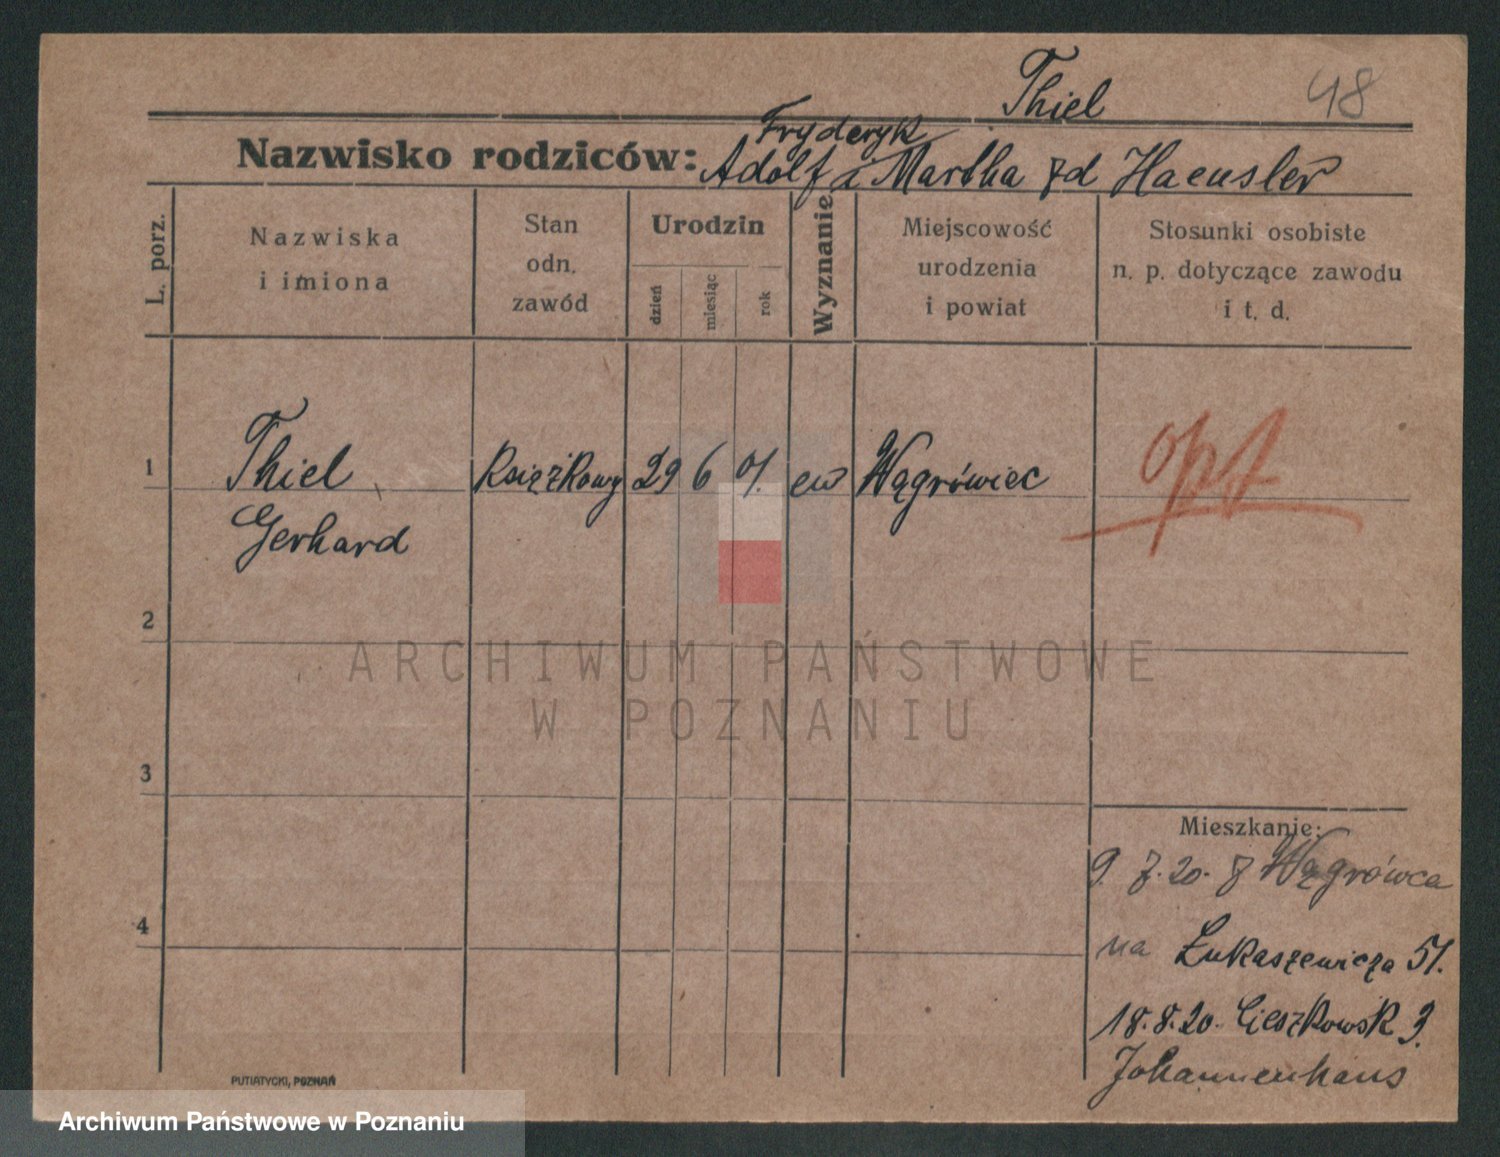 Thiel 48
Fryderyk
Nazwisko rodziców: Adolf i Martha zd Haeusler
L. porz.
Nazwiska
i imiona
Stan
odn.
zawód
Urodzin
dzień
miesiąc
rok
Wyznanie
Miejscowość
urodzenia
i powiat
Stosunki osobiste
n. p. dotyczące zawodu
i t. d.
1 Thiel Książkowy 29 6 01. ew Wągrówiec opt
Gerhard
2
ARCHIWUM PAŃSTWOWE
W POZNANIU
3
Mieszkanie:
9. 7. 20. z Wągrówca
4
na Łukaszewicza 51.
18.8.20. Cieszkowsk 3.
Johannenhaus
PUTIATYCKI, POZNAŃ
Archiwum Państwowe w Poznaniu